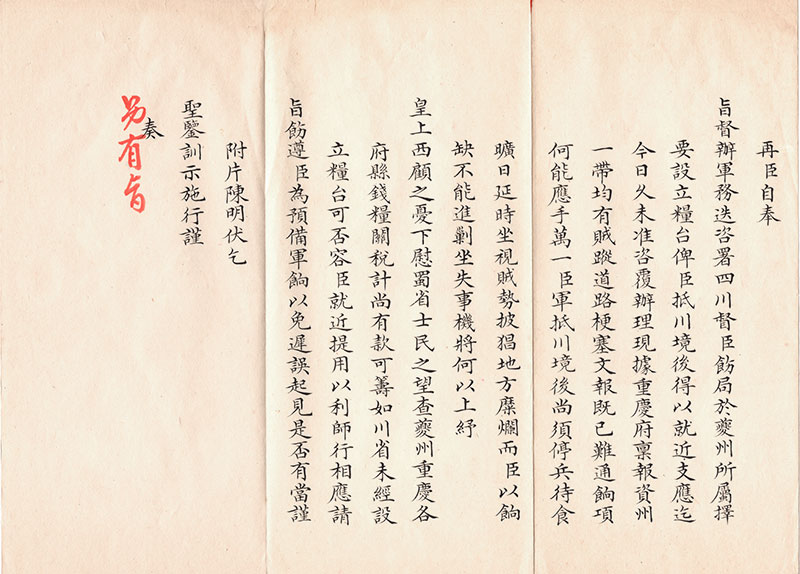 再臣自奉
旨督辦軍務迭咨署四川督臣飭局於夔州所屬擇
要設立糧台俾臣抵川境後得以就近支應迄
今日久未准咨覆辦理現據重慶府稟報資州
一帶均有賊蹤道路梗塞文報既已難通餉項
何能應手萬一臣軍抵川境後尚須停兵待食
曠日延時坐視賊勢披猖地方糜爛而臣以餉
缺不能進剿坐失事機將何以上紓
皇上西顧之憂下慰蜀省士民之望查夔州重慶各
府縣錢糧關稅計尚有款可籌如川省未經設
立糧台可否容臣就近提用以利師行相應請
旨飭遵臣為預備軍餉以免遲誤起見是否有當謹
附片陳明伏乞
聖鑒訓示施行謹
奏
另有旨